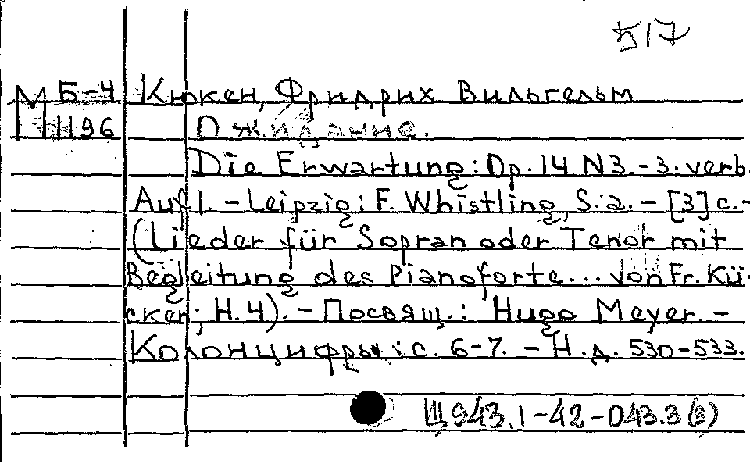 517
М Б-4 Кюкен, Фридрих Вильгельм
1196 Ожидание.
Die Erwartung: Op. 14 N3.-3. verb.
Aufl. - Leipzig: F. Whistling, S.a. - [3] c. -
(Lieder für Sopran oder Tenor mit
Begleitung des Pianoforte... von Fr. Kü-
cken; H. 4). - Посвящ.: Hugo Meyer. -
Колонцифры: с. 6-7. - Н.д. 530-533.
Щ943.1-42-043.3(3)